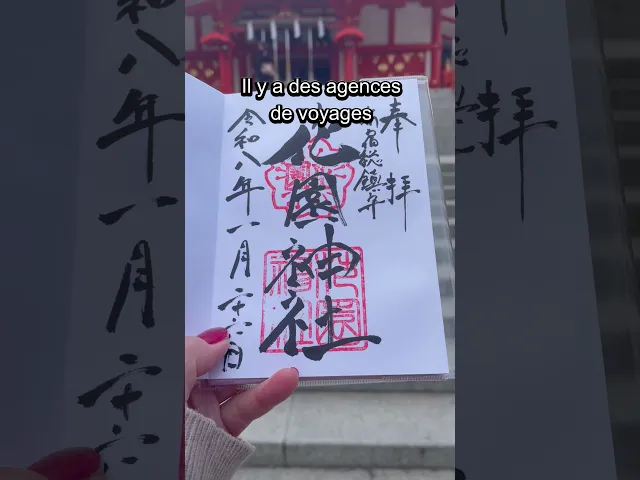 Il y a des agences
de voyages
奉拝
宿総鎮守
花園神社
令和八年一月二十六日